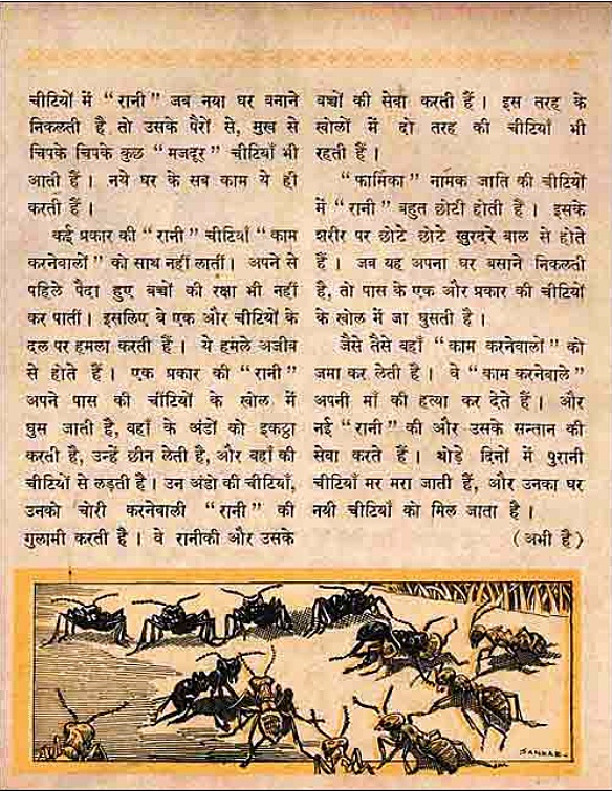 चीटियों में "रानी" जब नया घर बनाने
निकलती है तो उसके पैरों से, मुख से
चिपके चिपके कुछ "मजदूर" चीटियाँ भी
आती हैं। नये घर के सब काम ये ही
करती हैं।
कई प्रकार की "रानी" चीटियाँ "काम
करनेवालों" को साथ नहीं लातीं। अपने से
पहिले पैदा हुए बच्चों की रक्षा भी नहीं
कर पातीं। इसलिए वे एक और चीटियों के
दल पर हमला करती हैं। ये हमले अजीब
से होते हैं। एक प्रकार की "रानी"
अपने पास की चींटियों के खोल में
घुस जाती है, वहाँ के अंडों को इकट्ठा
करती है, उन्हें छीन लेती है, और वहाँ की
चीटियों से लड़ती है। उन अंडो की चीटियाँ,
उनको चोरी करनेवाली "रानी" की
गुलामी करती है। वे रानीकी और उसके
बच्चों की सेवा करती हैं। इस तरह के
खोलों में दो तरह की चीटियाँ भी
रहती हैं।
"फार्मिका" नामक जाति की चीटियों
में "रानी" बहुत छोटी होती है। इसके
शरीर पर छोटे छोटे खुरदरे बाल से होते
हैं। जब यह अपना घर बसाने निकलती
है, तो पास के एक और प्रकार की चीटियों
के खोल में जा घुसती है।
जैसे तैसे वहाँ "काम करनेवालों" को
जमा कर लेती है। वे "काम करनेवाले"
अपनी माँ की हत्या कर देते हैं। और
नई "रानी" की और उसके सन्तान की
सेवा करते हैं। थोड़े दिनों में पुरानी
चीटियाँ मर मरा जाती हैं, और उनका घर
नयी चीटियों को मिल जाता है।
(अभी है)
SANKAR